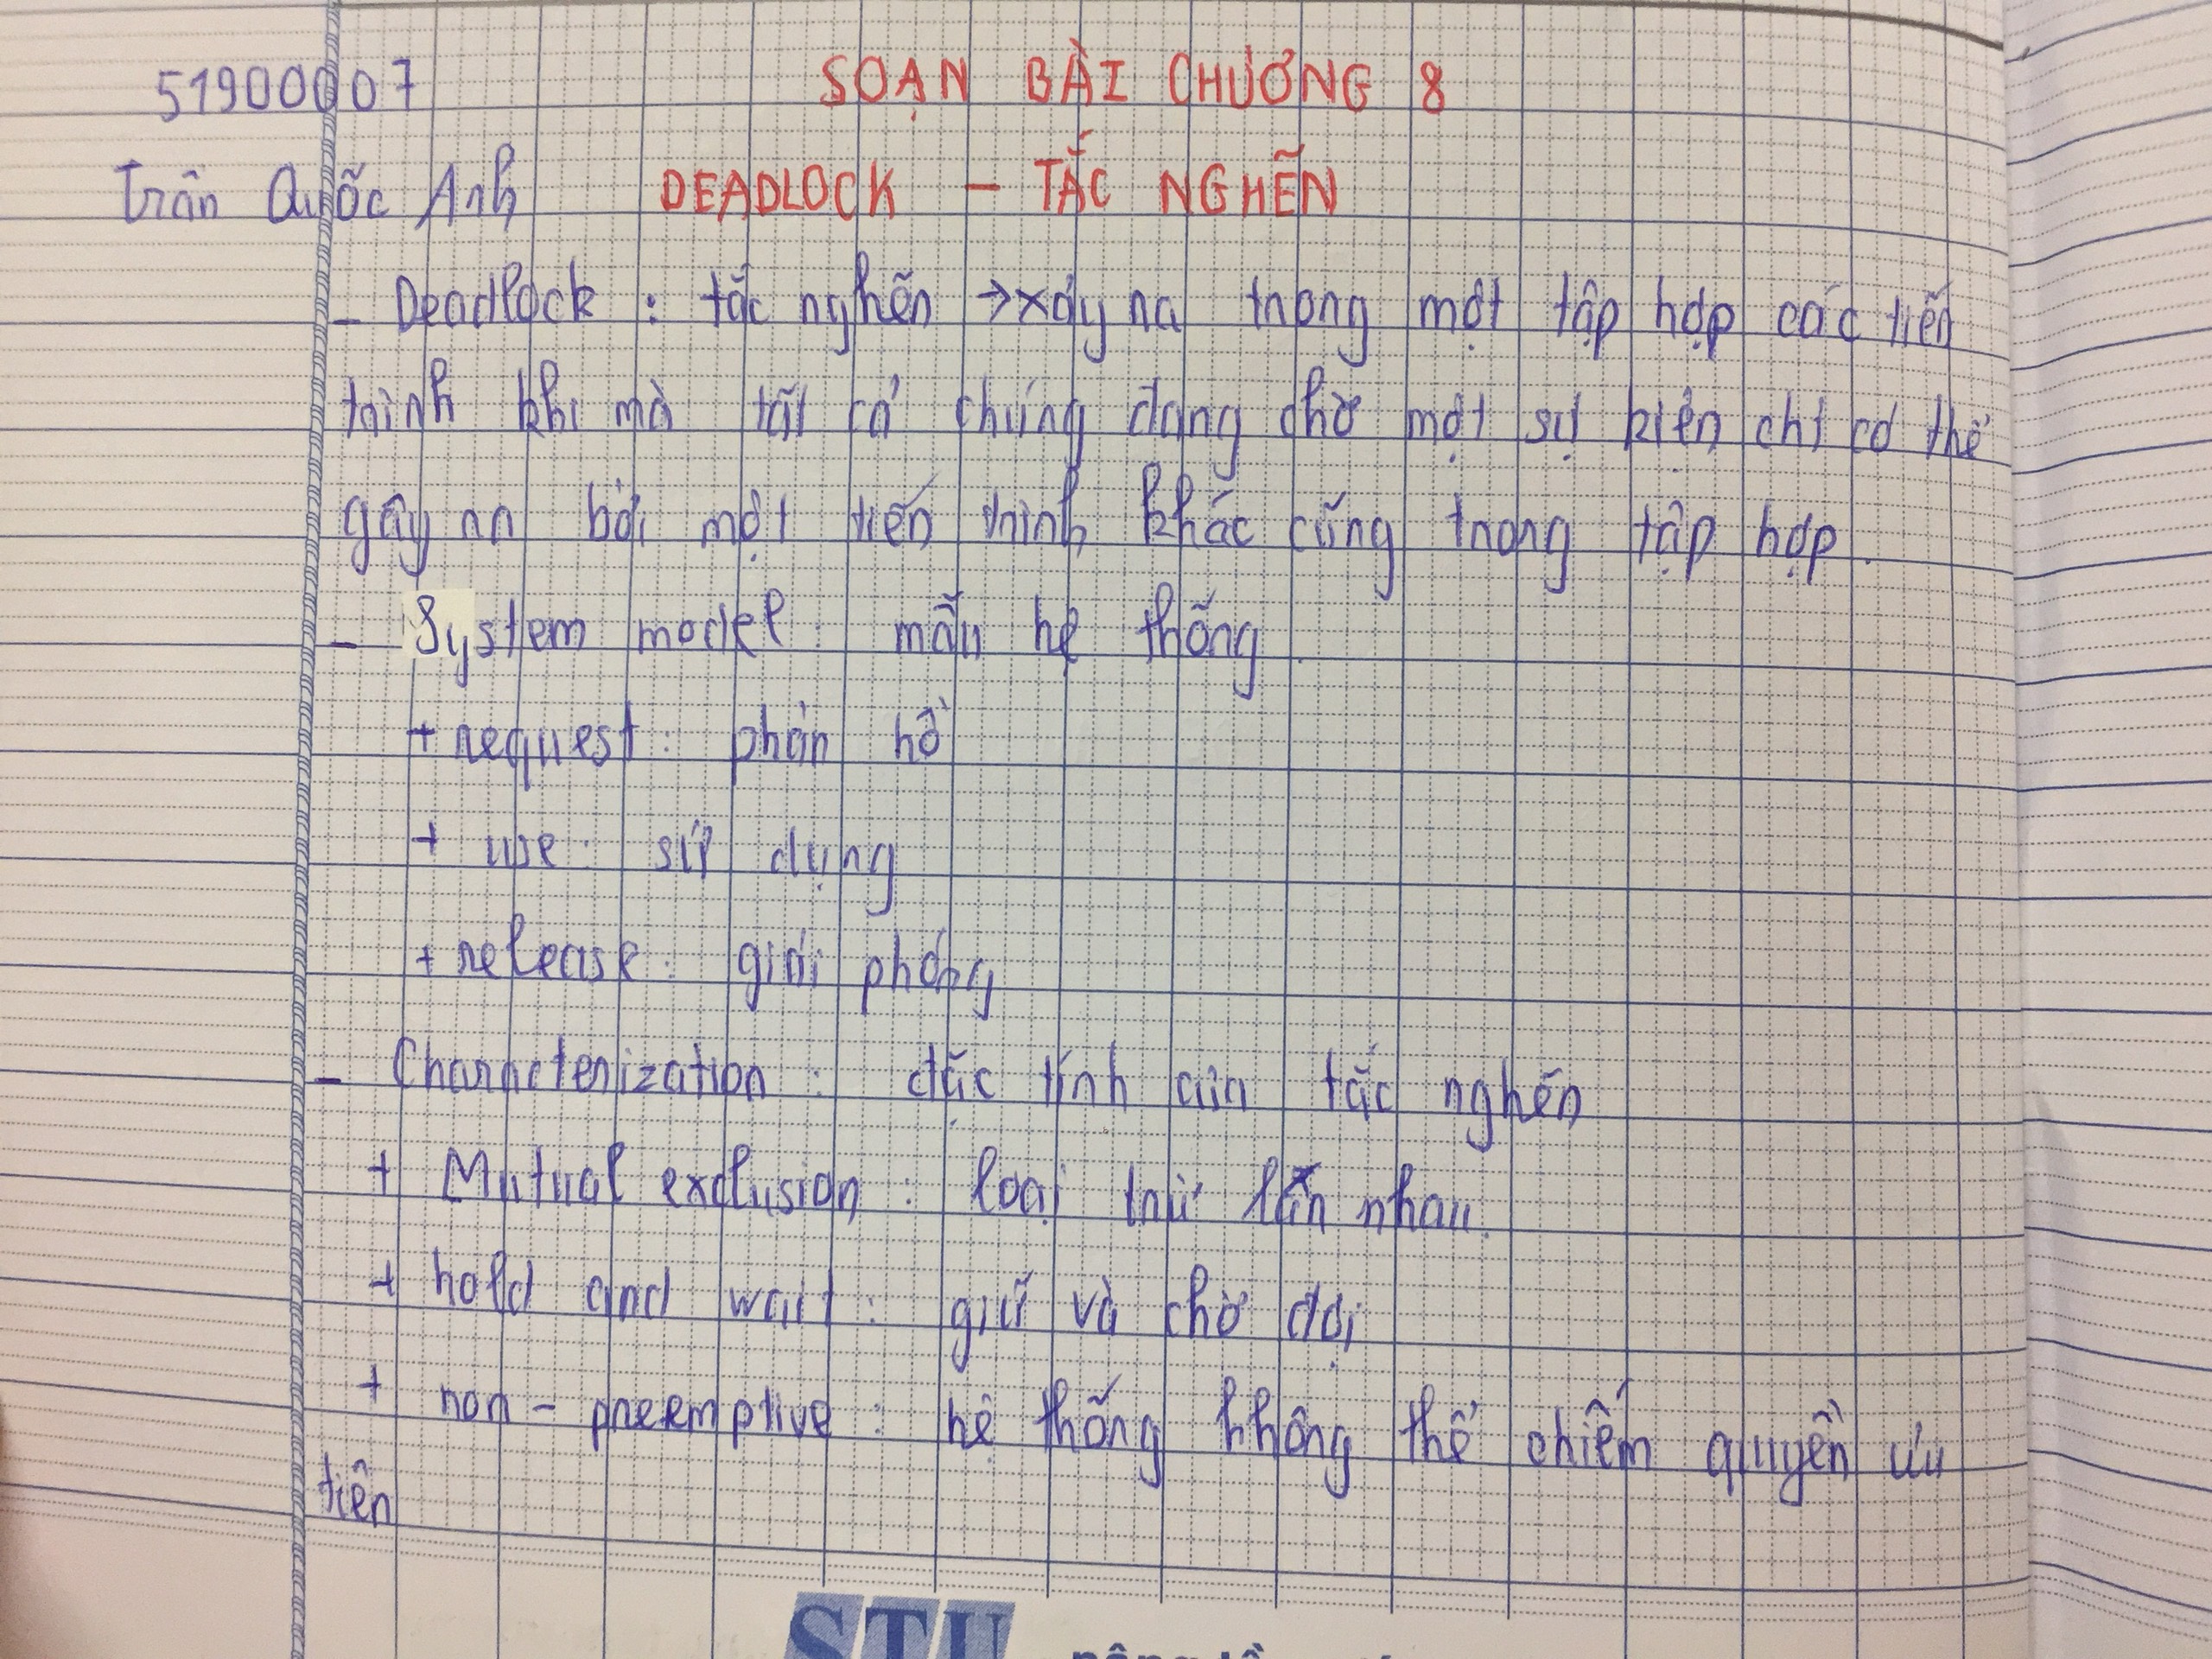 51900007
SOẠN BÀI CHƯƠNG 8
Trần Quốc Anh
DEADLOCK - TẮC NGHẼN
- Deadlock : tắc nghẽn → xảy ra trong một tập hợp các tiến
trình khi mà tất cả chúng đang chờ một sự kiện chỉ có thể
gây ra bởi một tiến trình khác cũng trong tập hợp.
- System model: mẫu hệ thống.
+ request: phản hồ
+ use: sử dụng
+ release: giải phóng
- Characterization : đặc tính của tắc nghẽn
+ Mutual exclusion : loại trừ lẫn nhau.
+ hold and wait : giữ và chờ đợi
+ non - preemptive : hệ thống không thể chiếm quyền ưu
tiên
STU